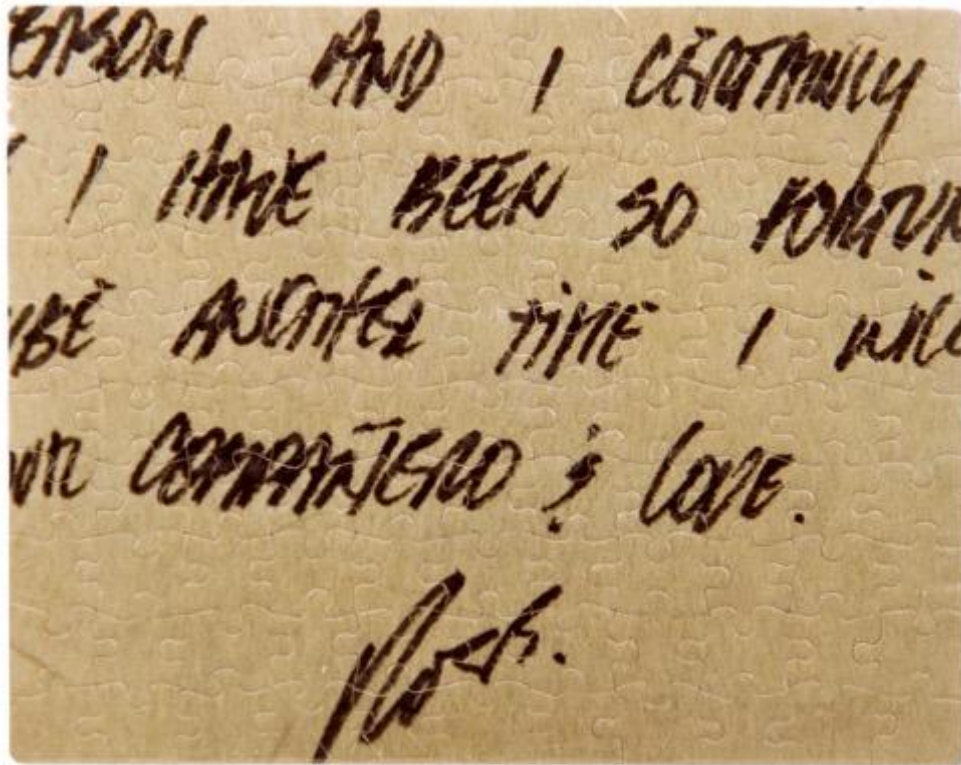 EASON AND I CERTAINLY
I HAVE BEEN SO FORTUN
YBE ANOTHER TIME I WILL
OUR COMPAÑJERO & LOVE.